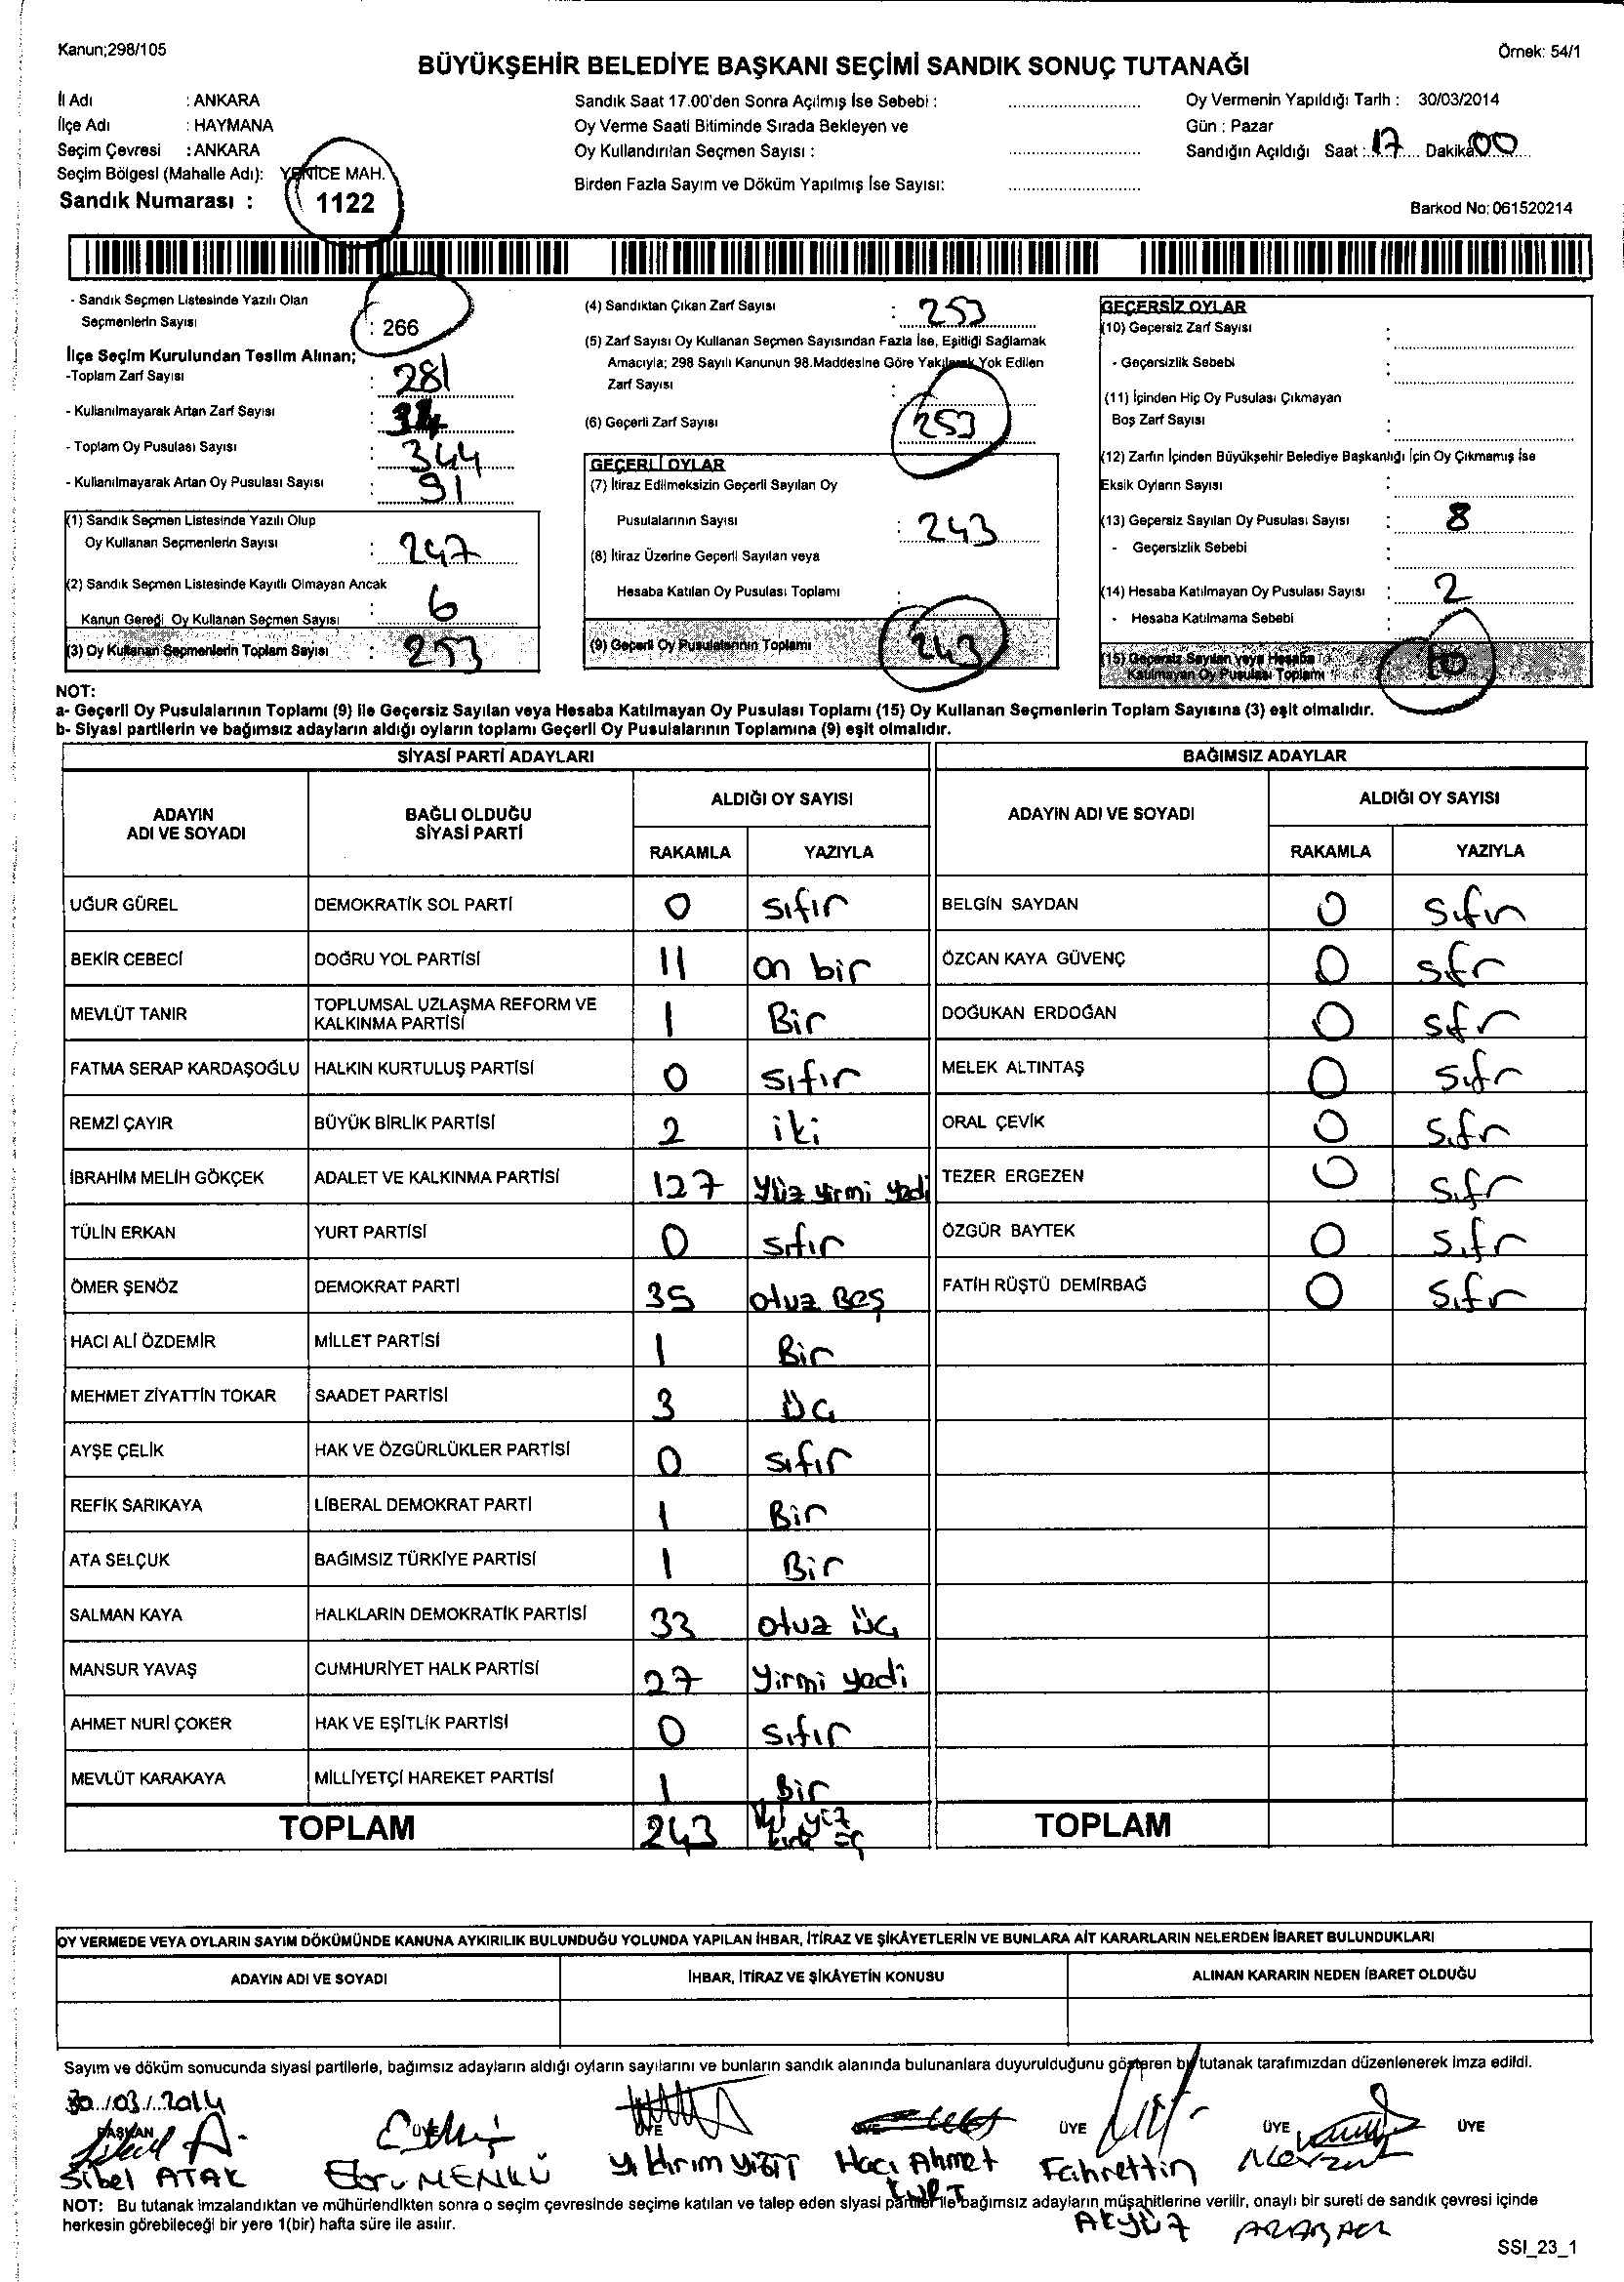 Kanun;298/105
Örnek: 54/1
BÜYÜKŞEHİR BELEDİYE BAŞKANI SEÇİMİ SANDIK SONUÇ TUTANAĞI
İl Adı : ANKARA
İlçe Adı : HAYMANA
Seçim Çevresi : ANKARA
Seçim Bölgesi (Mahalle Adı): YENİCE MAH.
Sandık Numarası : 1122
Sandık Saat 17.00'den Sonra Açılmış İse Sebebi :
Oy Verme Saati Bitiminde Sırada Bekleyen ve
Oy Kullandırılan Seçmen Sayısı :
Birden Fazla Sayım ve Döküm Yapılmış İse Sayısı:
Oy Vermenin Yapıldığı Tarih : 30/03/2014
Gün : Pazar
Sandığın Açıldığı Saat : 17 Dakika 00
Barkod No: 061520214
- Sandık Seçmen Listesinde Yazılı Olan
Seçmenlerin Sayısı : 266
İlçe Seçim Kurulundan Teslim Alınan;
-Toplam Zarf Sayısı : 281
- Kullanılmayarak Artan Zarf Sayısı :
- Toplam Oy Pusulası Sayısı : 344
- Kullanılmayarak Artan Oy Pusulası Sayısı : 91
(1) Sandık Seçmen Listesinde Yazılı Olup
Oy Kullanan Seçmenlerin Sayısı : 247
(2) Sandık Seçmen Listesinde Kayıtlı Olmayan Ancak
Kanun Gereği Oy Kullanan Seçmen Sayısı : 6
(3) Oy Kullanan Seçmenlerin Toplam Sayısı : 253
(4) Sandıktan Çıkan Zarf Sayısı : 253
(5) Zarf Sayısı Oy Kullanan Seçmen Sayısından Fazla İse, Eşitliği Sağlamak
Amacıyla; 298 Sayılı Kanunun 98.Maddesine Göre Yakılarak Yok Edilen
Zarf Sayısı :
(6) Geçerli Zarf Sayısı : 253
GEÇERLİ OYLAR
(7) İtiraz Edilmeksizin Geçerli Sayılan Oy
Pusulalarının Sayısı : 243
(8) İtiraz Üzerine Geçerli Sayılan veya
Hesaba Katılan Oy Pusulası Toplamı :
(9) Geçerli Oy Pusulalarının Toplamı 243
GEÇERSİZ OYLAR
(10) Geçersiz Zarf Sayısı :
- Geçersizlik Sebebi :
(11) İçinden Hiç Oy Pusulası Çıkmayan
Boş Zarf Sayısı :
(12) Zarfın İçinden Büyükşehir Belediye Başkanlığı İçin Oy Çıkmamış ise
Eksik Oyların Sayısı :
(13) Geçersiz Sayılan Oy Pusulası Sayısı : 8
- Geçersizlik Sebebi :
(14) Hesaba Katılmayan Oy Pusulası Sayısı : 2
- Hesaba Katılmama Sebebi :
(15) Geçersiz Sayılan veya Hesaba
Katılmayan Oy Pusulası Toplamı : 10
NOT:
a- Geçerli Oy Pusulalarının Toplamı (9) ile Geçersiz Sayılan veya Hesaba Katılmayan Oy Pusulası Toplamı (15) Oy Kullanan Seçmenlerin Toplam Sayısına (3) eşit olmalıdır.
b- Siyasi partilerin ve bağımsız adayların aldığı oyların toplamı Geçerli Oy Pusulalarının Toplamına (9) eşit olmalıdır.
SİYASİ PARTİ ADAYLARI
ADAYIN ADI VE SOYADI BAĞLI OLDUĞU SİYASİ PARTİ ALDIĞI OY SAYISI
RAKAMLA YAZIYLA
UĞUR GÜREL DEMOKRATİK SOL PARTİ 0 sıfır
BEKİR CEBECİ DOĞRU YOL PARTİSİ 11 on bir
MEVLÜT TANIR TOPLUMSAL UZLAŞMA REFORM VE KALKINMA PARTİSİ 1 Bir
FATMA SERAP KARDAŞOĞLU HALKIN KURTULUŞ PARTİSİ 0 sıfır
REMZİ ÇAYIR BÜYÜK BİRLİK PARTİSİ 2 iki
İBRAHİM MELİH GÖKÇEK ADALET VE KALKINMA PARTİSİ 127 Yüz yirmi yedi
TÜLİN ERKAN YURT PARTİSİ 0 sıfır
ÖMER ŞENÖZ DEMOKRAT PARTİ 35 otuz Beş
HACI ALİ ÖZDEMİR MİLLET PARTİSİ 1 Bir
MEHMET ZİYATTİN TOKAR SAADET PARTİSİ 3 üç
AYŞE ÇELİK HAK VE ÖZGÜRLÜKLER PARTİSİ 0 sıfır
REFİK SARIKAYA LİBERAL DEMOKRAT PARTİ 1 Bir
ATA SELÇUK BAĞIMSIZ TÜRKİYE PARTİSİ 1 Bir
SALMAN KAYA HALKLARIN DEMOKRATİK PARTİSİ 33 otuz üç
MANSUR YAVAŞ CUMHURİYET HALK PARTİSİ 27 Yirmi yedi
AHMET NURİ ÇOKER HAK VE EŞİTLİK PARTİSİ 0 sıfır
MEVLÜT KARAKAYA MİLLİYETÇİ HAREKET PARTİSİ 1 Bir
TOPLAM 243 iki yüz kırk üç
BAĞIMSIZ ADAYLAR
ADAYIN ADI VE SOYADI ALDIĞI OY SAYISI
RAKAMLA YAZIYLA
BELGİN SAYDAN 0 sıfır
ÖZCAN KAYA GÜVENÇ 0 sıfr
DOĞUKAN ERDOĞAN 0 sıfr
MELEK ALTINTAŞ 0 sıfr
ORAL ÇEVİK 0 sıfr
TEZER ERGEZEN 0 sıfr
ÖZGÜR BAYTEK 0 sıfr
FATİH RÜŞTÜ DEMİRBAĞ 0 sıfr
TOPLAM
OY VERMEDE VEYA OYLARIN SAYIM DÖKÜMÜNDE KANUNA AYKIRILIK BULUNDUĞU YOLUNDA YAPILAN İHBAR, İTİRAZ VE ŞİKÂYETLERİN VE BUNLARA AİT KARARLARIN NELERDEN İBARET BULUNDUKLARI
ADAYIN ADI VE SOYADI İHBAR, İTİRAZ VE ŞİKÂYETİN KONUSU ALINAN KARARIN NEDEN İBARET OLDUĞU
Sayım ve döküm sonucunda siyasi partilerle, bağımsız adayların aldığı oyların sayılarını ve bunların sandık alanında bulunanlara duyurulduğunu gösteren bu tutanak tarafımızdan düzenlenerek imza edildi.
30/03/2014
BAŞKAN ÜYE ÜYE ÜYE ÜYE ÜYE ÜYE
Sibel ATAK Ebru MENKÜ Yıldırım YİĞİT Hacı Ahmet KURT Fahrettin AKYÜZ
NOT: Bu tutanak imzalandıktan ve mühürlendikten sonra o seçim çevresinde seçime katılan ve talep eden siyasi partiler ile bağımsız adayların müşahitlerine verilir, onaylı bir sureti de sandık çevresi içinde
herkesin görebileceği bir yere 1(bir) hafta süre ile asılır.
SSI_23_1